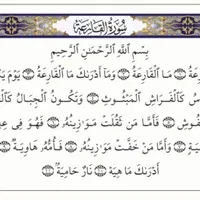 سُورَةُ القَارِعَةِ
بِسْمِ ٱللَّهِ ٱلرَّحْمَٰنِ ٱلرَّحِيمِ
رِعَةُ ① مَا ٱلْقَارِعَةُ ② وَمَآ أَدْرَىٰكَ مَا ٱلْقَارِعَةُ ③ يَوْمَ يَ
سُ كَٱلْفَرَاشِ ٱلْمَبْثُوثِ ④ وَتَكُونُ ٱلْجِبَالُ كَٱلْ
فُوشِ ⑤ فَأَمَّا مَن ثَقُلَتْ مَوَٰزِينُهُۥ ⑥ فَهُوَ فِى عِي
ةٍ ⑦ وَأَمَّا مَنْ خَفَّتْ مَوَٰزِينُهُۥ ⑧ فَأُمُّهُۥ هَاوِيَةٌ ⑨
أَدْرَىٰكَ مَا هِيَهْ ⑩ نَارٌ حَامِيَةٌۢ ⑪